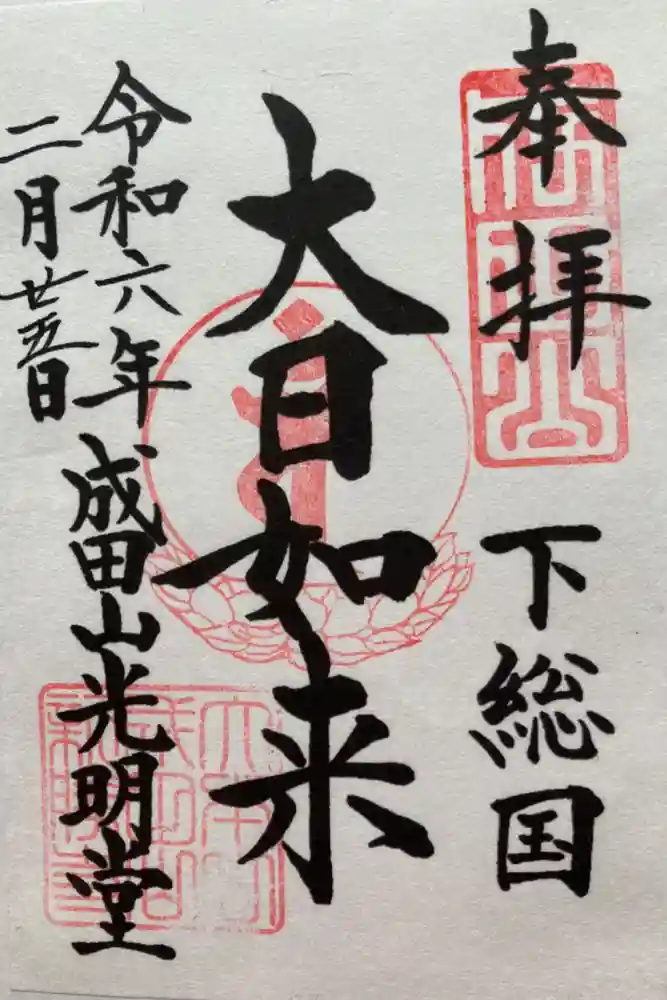 奉拝
下総国
大日如来
令和六年
二月廿五日
成田山光明堂